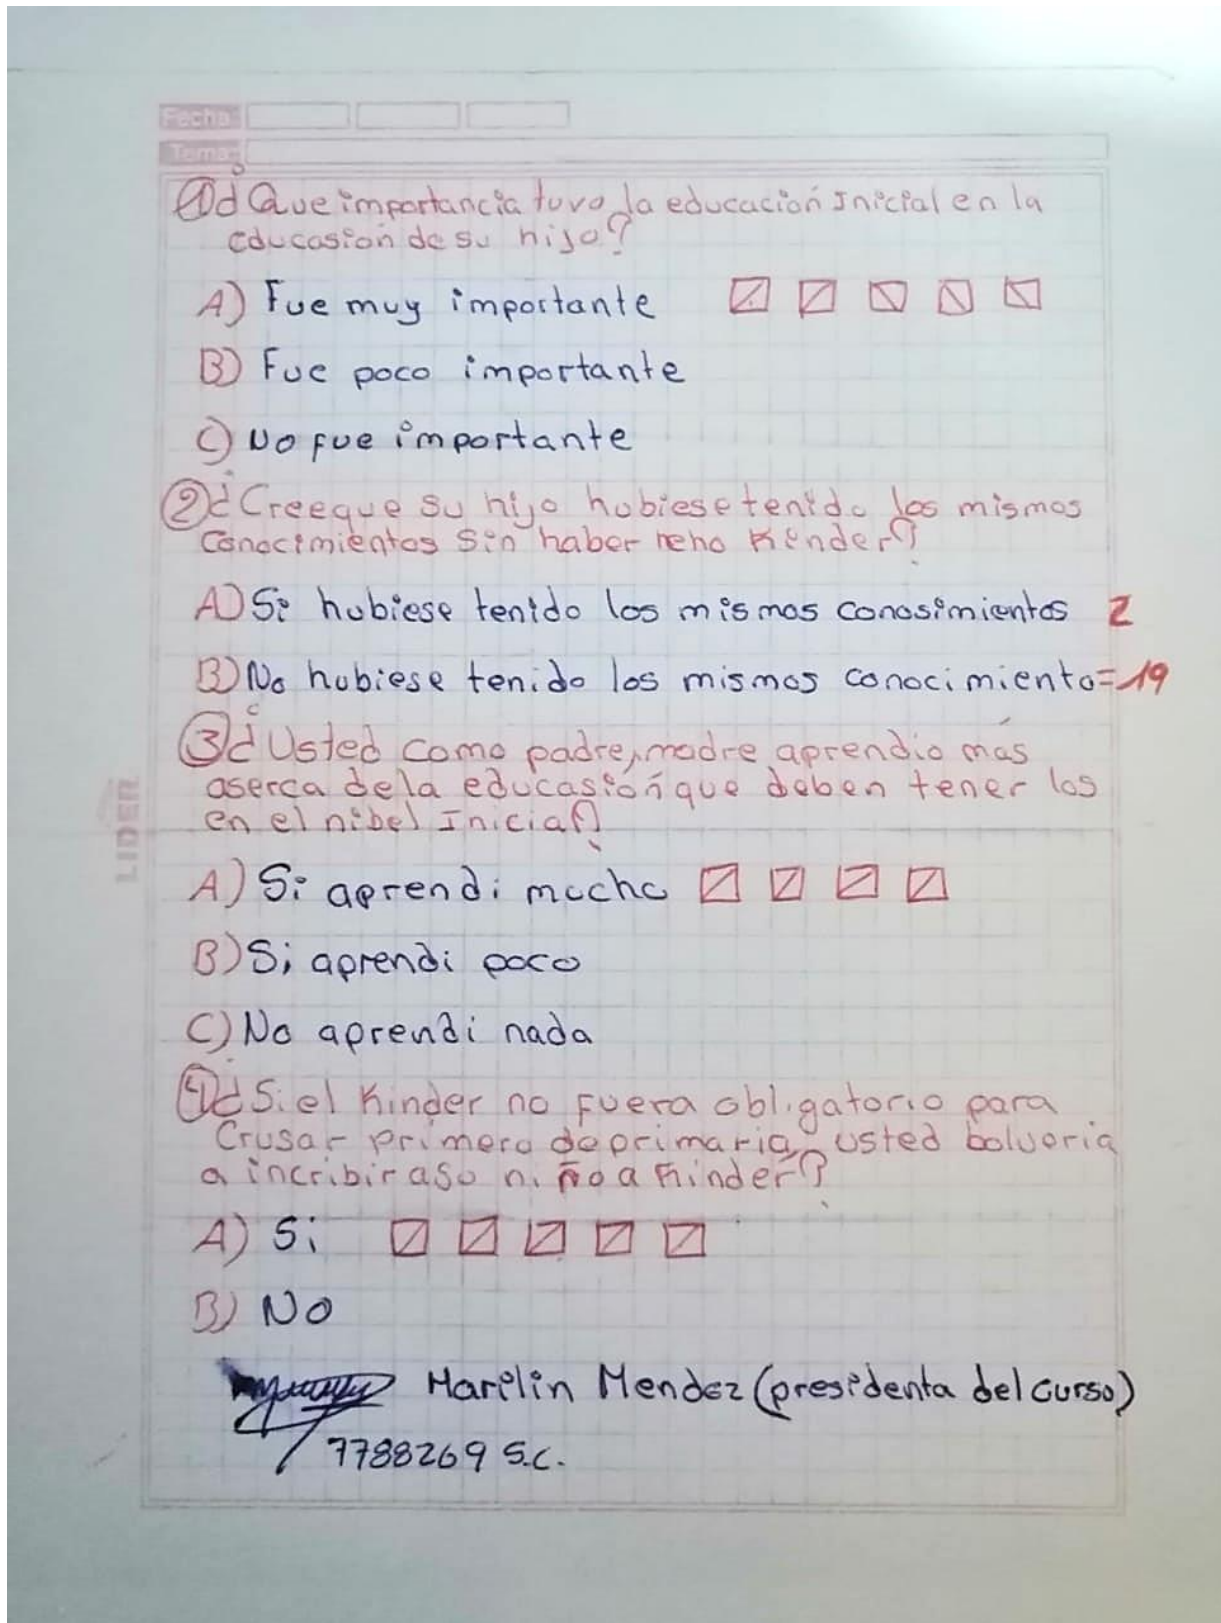 Fecha:
Tema:
① ¿Que importancia tuvo la educación Inicial en la
educasión de su hijo?
A) Fue muy importante
B) Fue poco importante
C) No fue importante
② ¿Cree que su hijo hubiese tenido los mismos
Conocimientos sin haber Kinder?
A) Si hubiese tenido los mismos conosimientos 2
B) No hubiese tenido los mismos conocimiento=19
③ ¿Usted como padre, madre aprendio más
aserca de la educasión que deben tener los
en el nibel Inicial?
A) Si aprendi mucho
B) Si aprendi poco
C) No aprendi nada
④ ¿Si el Kinder no fuera obligatorio para
Crusar primero de primaria, usted bolveria
a incribir a su niño a Kinder?
A) Si
B) No
Marilin Mendez (presidenta del curso)
7788269 S.C.
LIDER